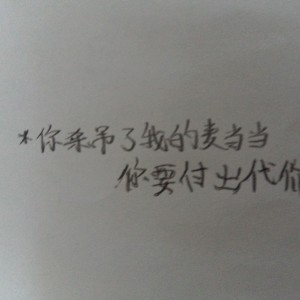 *你采吊了我的麦当当
你要付出代价